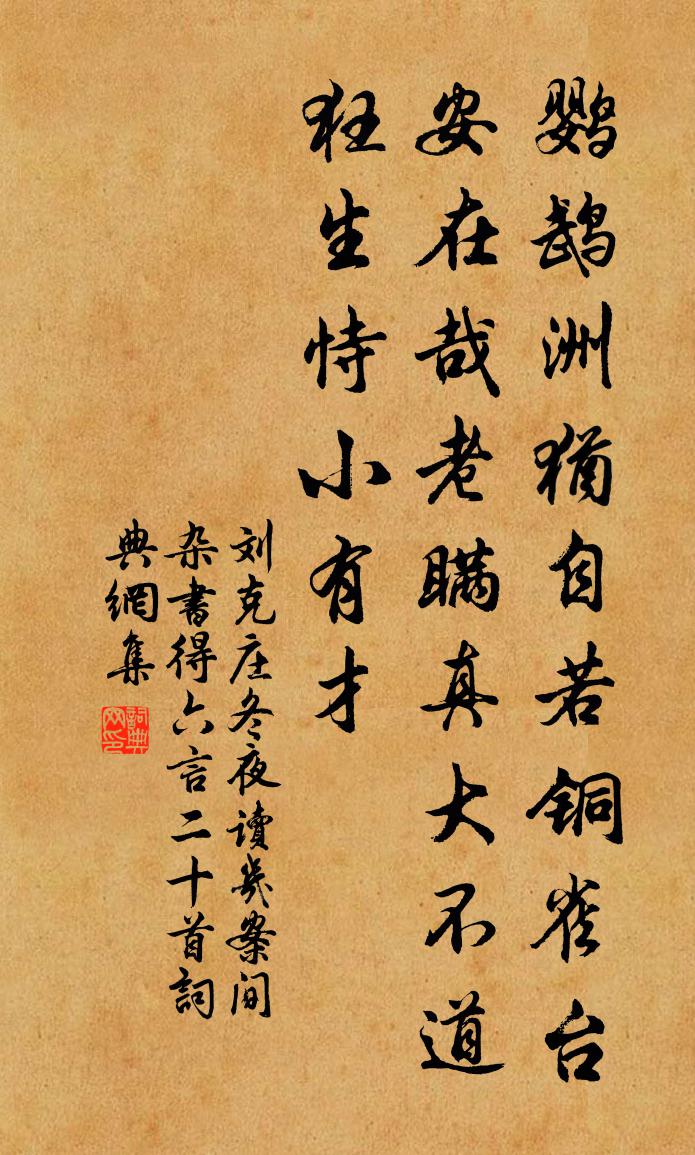 鹦鹉洲犹自若铜雀台
安在哉老瞒真大不道
狂生恃小有才
刘克庄冬夜讀幾案间
杂書得六言二十首詞
典網集
詞典
网印